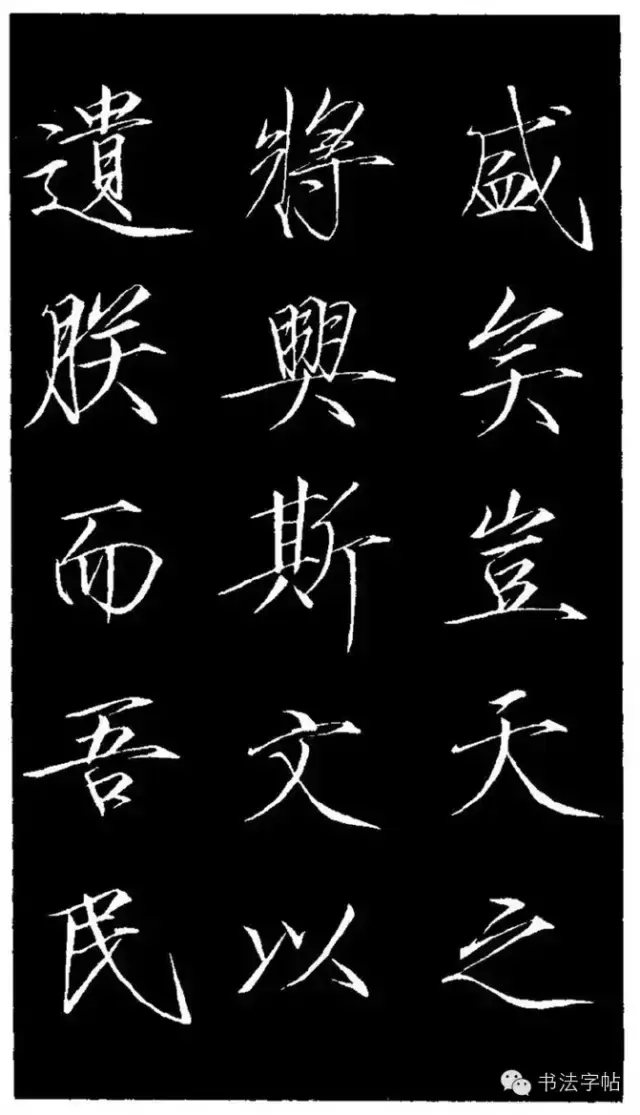 盛矣豈天之
將興斯文以
遺朕而吾民
书法字帖